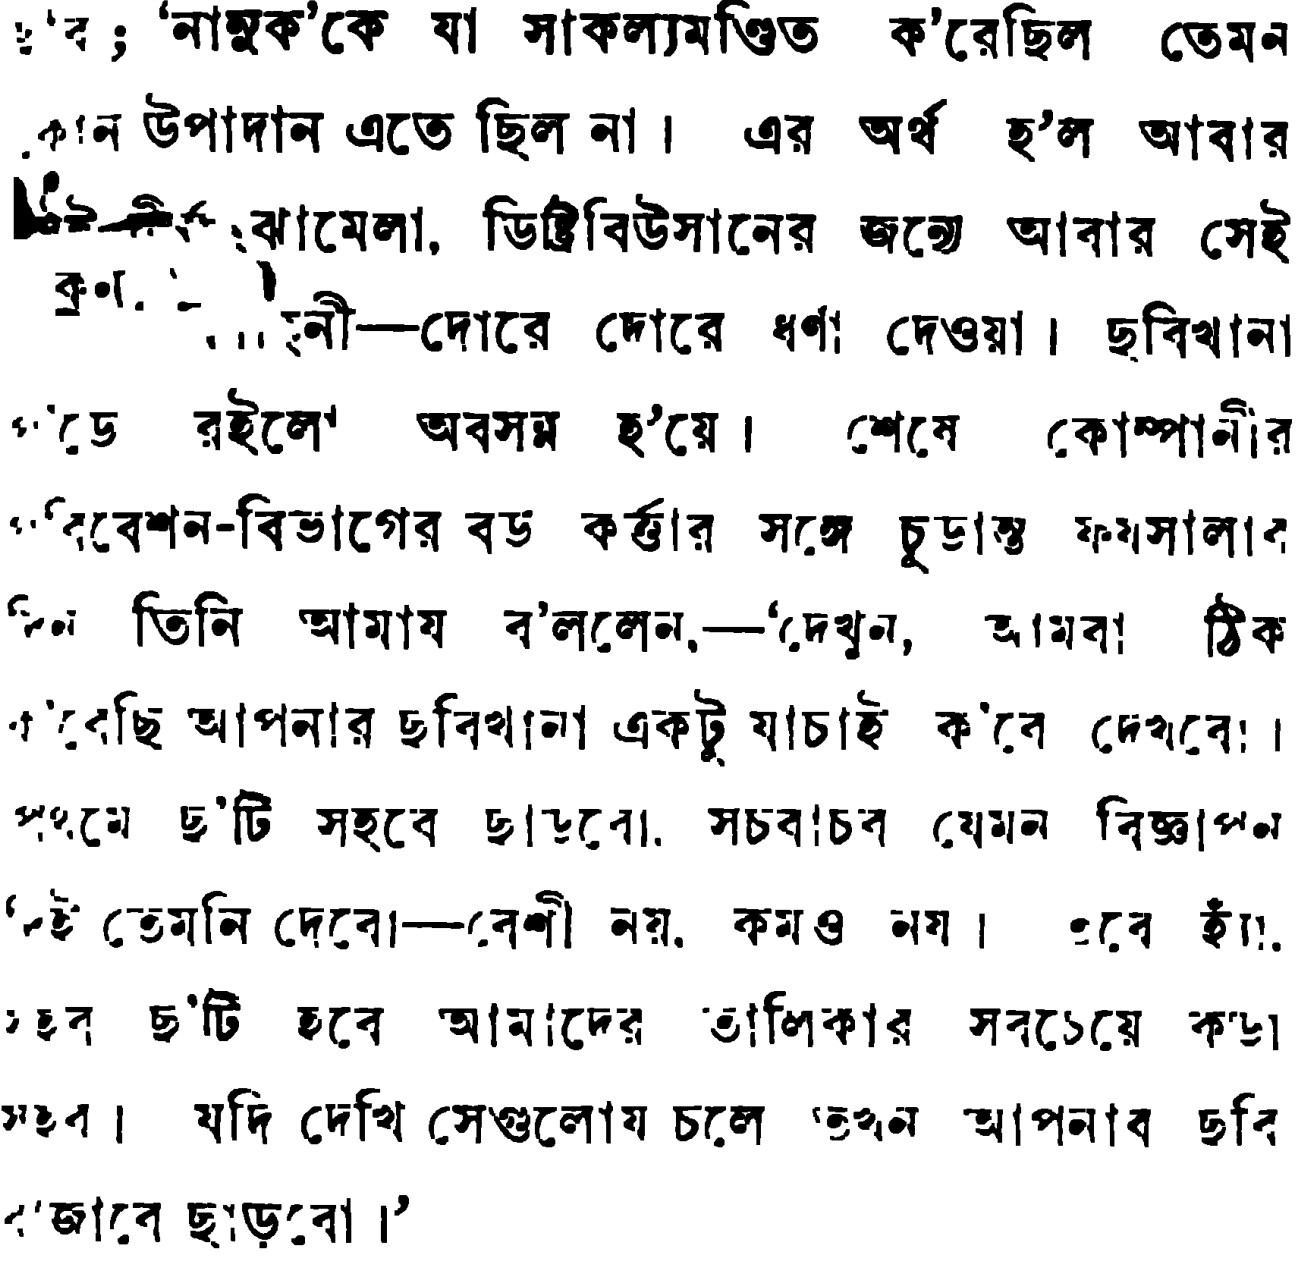 ছবি; ‘নানুক’কে যা সাফল্যমণ্ডিত ক’রেছিল তেমন
কোন উপাদান এতে ছিল না। এর অর্থ হ’ল আবার
সেই ঝামেলা, ডিষ্ট্রিবিউসানের জন্যে আবার সেই
দোরে দোরে ধর্ণা দেওয়া। ছবিখানা
প’ড়ে রইলো অবসন্ন হ’য়ে। শেষে কোম্পানীর
পরিবেশন-বিভাগের বড় কর্ত্তার সঙ্গে চূড়ান্ত ফয়সালার
দিন তিনি আমায় ব’ললেন,—‘দেখুন, আমরা ঠিক
ক’রেছি আপনার ছবিখানা একটু যাচাই ক’রে দেখবো।
প্রথমে ছ’টি সহরে ছাড়বো, সচরাচর যেমন বিজ্ঞাপন
দিই তেমনি দেবো—বেশী নয়, কমও নয়। তবে হ্যাঁ,
সহর ছ’টি হবে আমাদের তালিকার সবচেয়ে কড়া
সহর। যদি দেখি সেগুলোয় চলে তখন আপনার ছবি
বাজারে ছাড়বো।’